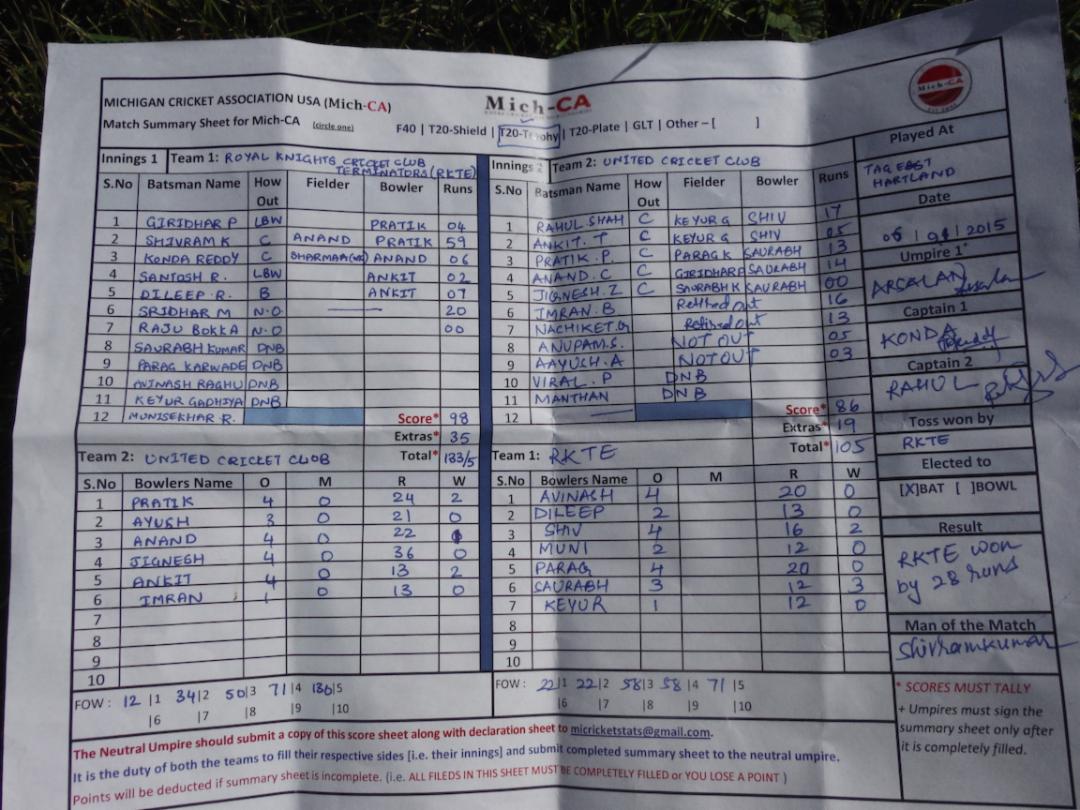 MICHIGAN CRICKET ASSOCIATION USA (Mich-CA)
Mich-CA
Match Summary Sheet for Mich-CA (circle one) F40 | T20-Shield | T20-Trophy | T20-Plate | GLT | Other – [ ]
Mich-CA
Innings 1 Team 1: ROYAL KNIGHTS CRICKET CLUB
TERMINATORS (RKTE)
S.No Batsman Name How Out Fielder Bowler Runs
1 GIRIDHAR P LBW PRATIK 04
2 SHIVRAM K C ANAND PRATIK 59
3 KONDA REDDY C SHARMAA(WK) ANAND 06
4 SANTOSH R. LBW ANKIT 02
5 DILEEP R. B ANKIT 07
6 SRIDHAR M N.O 20
7 RAJU BOKKA N.O 00
8 SAURABH KUMAR DNB
9 PARAG KARWADE DNB
10 AVINASH RAGHU DNB
11 KEYUR GADHIYA DNB
12 MUNISEKHAR R.
Score* 98
Extras* 35
Total* 133/5
Team 2: UNITED CRICKET CLUB
S.No Bowlers Name O M R W
1 PRATIK 4 0 24 2
2 AYUSH 3 0 21 0
3 ANAND 4 0 22
4 JIGNESH 4 0 36 0
5 ANKIT 4 0 13 2
6 IMRAN 1 0 13 0
7
8
9
10
FOW : 12 |1 34|2 50|3 71|4 130|5
|6 |7 |8 |9 |10
Innings 2 Team 2: UNITED CRICKET CLUB
S.No Batsman Name How Out Fielder Bowler Runs
1 RAHUL SHAH C KEYUR G SHIV 17
2 ANKIT. T C KEYUR G SHIV 05
3 PRATIK .P. C PARAG K SAURABH 13
4 ANAND. C C GIRIDHAR P SAURABH 14
5 JIGNESH. Z C SAURABH K SAURABH 00
6 IMRAN. B Retired out 16
7 NACHIKET.G Retired out 13
8 ANUPAM.S. NOT OUT 05
9 AAYUSH. A NOT OUT 03
10 VIRAL. P DNB
11 MANTHAN DNB
12
Score* 86
Extras* 19
Total* 105
Team 1: RKTE
S.No Bowlers Name O M R W
1 AVINASH 4 20 0
2 DILEEP 2 13 0
3 SHIV 4 16 2
4 MUNI 2 12 0
5 PARAG 4 20 0
6 SAURABH 3 12 3
7 KEYUR 1 12 0
8
9
10
FOW : 22|1 22|2 58|3 58|4 71|5
|6 |7 |8 |9 |10
Played At
TAG EAST
HARTLAND
Date
2015
Umpire 1*
ARSALAN
Captain 1
KONDA
Captain 2
RAHUL
Toss won by
RKTE
Elected to
[X]BAT [ ]BOWL
Result
RKTE won
by 28 runs
Man of the Match
Shivramkumar
* SCORES MUST TALLY
+ Umpires must sign the
summary sheet only after
it is completely filled.
The Neutral Umpire should submit a copy of this score sheet along with declaration sheet to micricketstats@gmail.com.
It is the duty of both the teams to fill their respective sides [i.e. their innings) and submit completed summary sheet to the neutral umpire.
Points will be deducted if summary sheet is incomplete. (i.e. ALL FILEDS IN THIS SHEET MUST BE COMPLETELY FILLED or YOU LOSE A POINT )